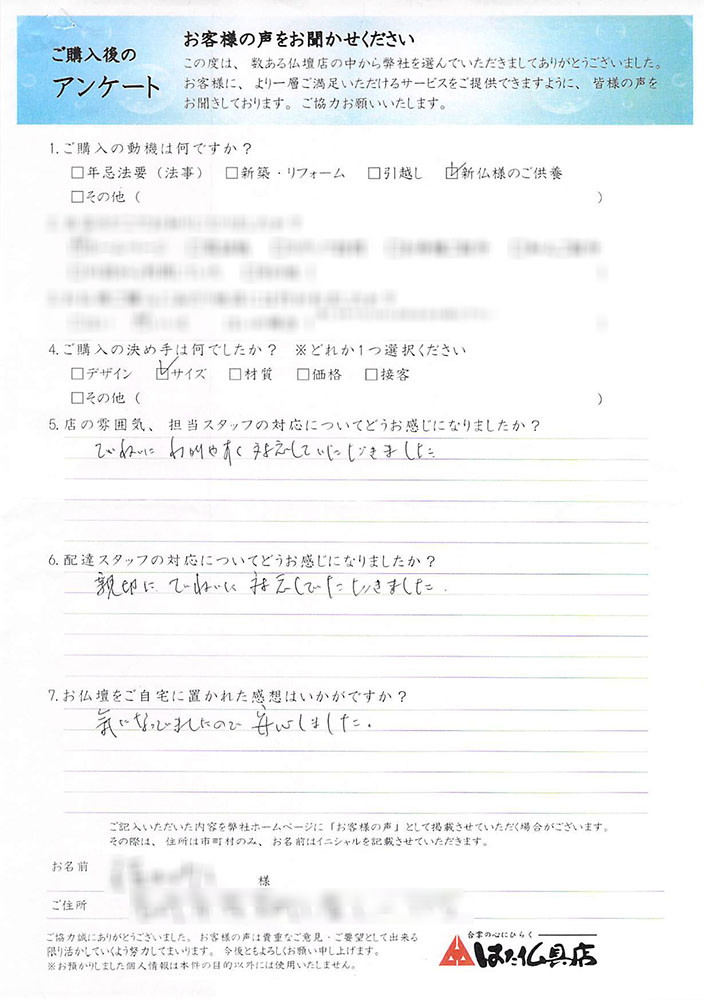 ご購入後の
アンケート
お客様の声をお聞かせください
この度は、数ある仏壇店の中から弊社を選んでいただきましてありがとうございました。
お客様に、より一層ご満足いただけるサービスをご提供できますように、皆様の声を
お聞きしております。ご協力お願いいたします。
1.ご購入の動機は何ですか？
□年忌法要（法事） □新築・リフォーム □引越し ☑新仏様のご供養
□その他（ ）
4.ご購入の決め手は何でしたか？ ※どれか1つ選択ください
□デザイン ☑サイズ □材質 □価格 □接客
□その他（ ）
5.店の雰囲気、担当スタッフの対応についてどうお感じになりましたか？
ていねいに わかりやすく 対応していただきました
6.配達スタッフの対応についてどうお感じになりましたか？
親切に ていねいに 対応していただきました.
7.お仏壇をご自宅に置かれた感想はいかがですか？
気になっていましたので 安心しました。
ご記入いただいた内容を弊社ホームページに「お客様の声」として掲載させていただく場合がございます。
その際は、住所は市町村のみ、お名前はイニシャルを記載させていただきます。
お名前 様
ご住所
ご協力誠にありがとうございました。お客様の声は貴重なご意見・ご要望として出来る
限り活かしていくよう努力してまいります。今後ともよろしくお願い申し上げます。
※お預かりしました個人情報は本件の目的以外には使用いたしません。
合掌の心にひらく
はた仏具店